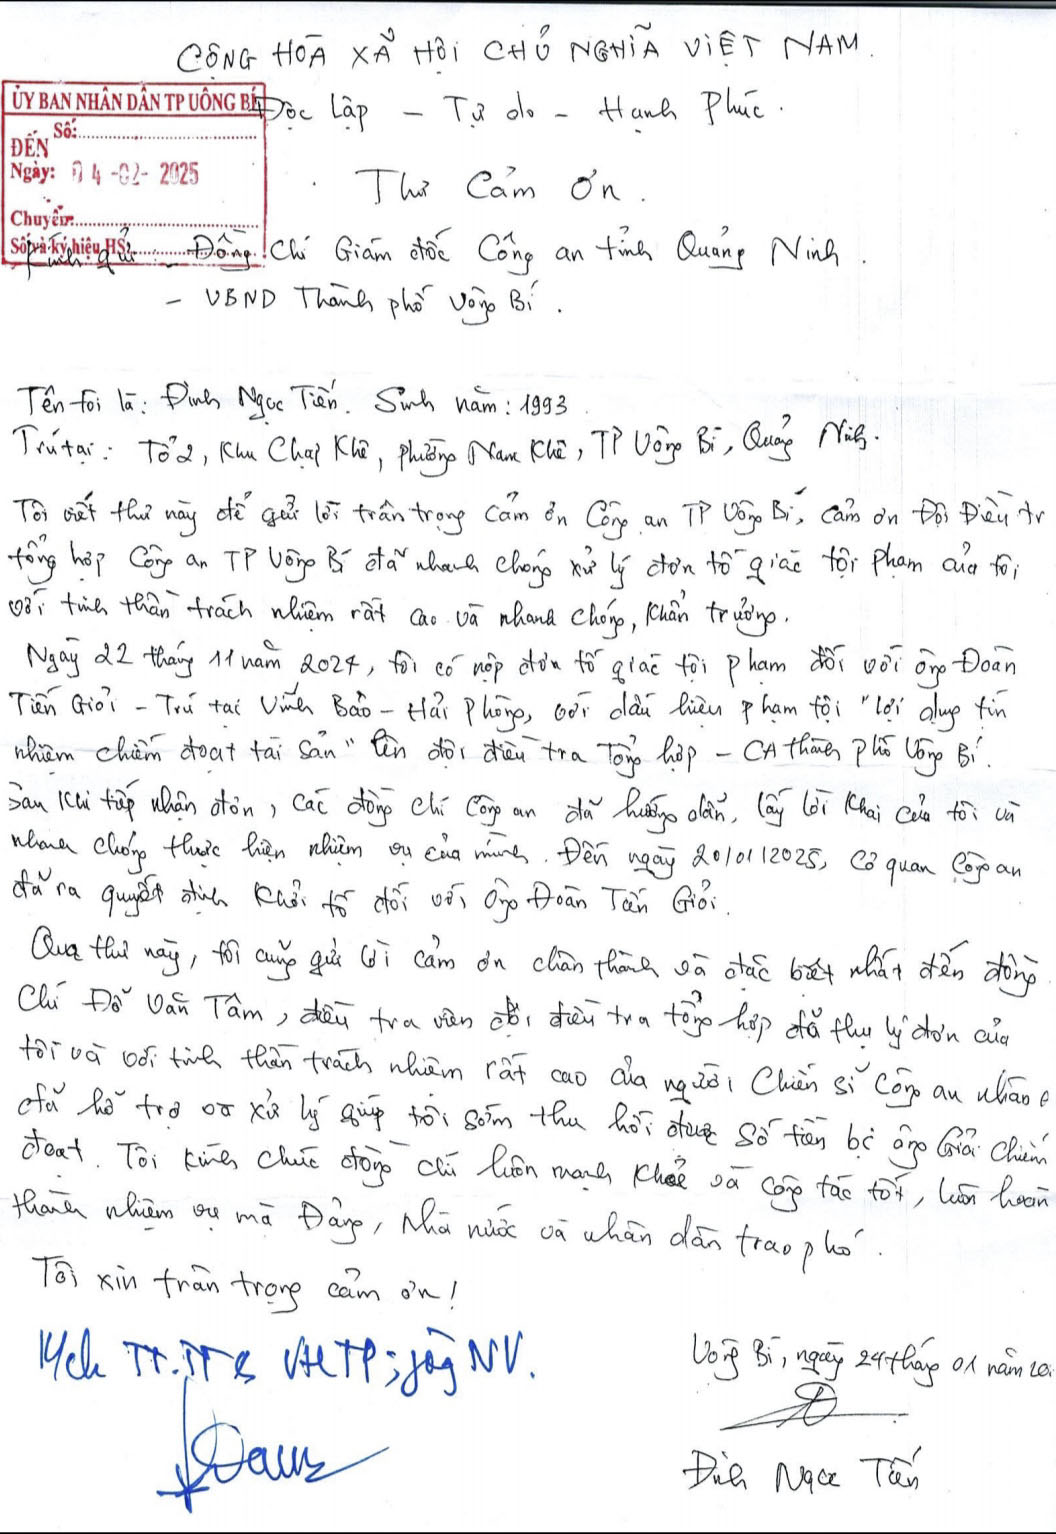 CỘNG HOÀ XÃ HỘI CHỦ NGHĨA VIỆT NAM.
Độc Lập - Tự do - Hạnh Phúc.
ỦY BAN NHÂN DÂN TP UÔNG BÍ
ĐẾN Số:
Ngày: 04-02-2025
Chuyển:
Số và ký hiệu HS:
Thư Cảm Ơn.
Kính gửi - Đồng Chí Giám đốc Công an tỉnh Quảng Ninh.
- UBND Thành phố Uông Bí.
Tên tôi là: Đinh Ngọc Tiến. Sinh năm: 1993
Trú tại: Tổ 2, Khu Chạp Khê, phường Nam Khê, TP Uông Bí, Quảng Ninh.
Tôi viết thư này để gửi lời trân trọng cảm ơn Công an TP Uông Bí, cảm ơn Đội Điều tr
tổng hợp Công an TP Uông Bí đã nhanh chóng xử lý đơn tố giác tội phạm của tôi
với tinh thần trách nhiệm rất cao và nhanh chóng, khẩn trương.
Ngày 22 tháng 11 năm 2024, tôi có nộp đơn tố giác tội phạm đối với ông Đoàn
Tiến Giỏi - Trú tại Vĩnh Bảo - Hải Phòng, với dấu hiệu phạm tội "lợi dụng tín
nhiệm chiếm đoạt tài sản" lên đội điều tra Tổng hợp - CA thành phố Uông Bí.
Sau khi tiếp nhận đơn, các đồng chí Công an đã hướng dẫn, lấy lời khai của tôi và
nhanh chóng thực hiện nhiệm vụ của mình. Đến ngày 20/01/2025, Cơ quan Công an
đã ra quyết định khởi tố đối với Ông Đoàn Tiến Giỏi.
Qua thư này, tôi cũng gửi lời cảm ơn chân thành và đặc biệt nhất đến đồng
chí Đỗ Văn Tâm, điều tra viên đội điều tra tổng hợp đã thụ lý đơn của
tôi và với tinh thần trách nhiệm rất cao của người Chiến sĩ Công an nhân
đã hỗ trợ xử lý giúp tôi sớm thu hồi được số tiền bị ông Giỏi chiếm
đoạt. Tôi kính chúc đồng chí luôn mạnh khoẻ và công tác tốt, luôn hoàn
thành nhiệm vụ mà Đảng, Nhà nước và nhân dân trao phó.
Tôi xin trân trọng cảm ơn!
Uông Bí, ngày 24 tháng 01 năm 20
TT.TT &
Đinh Ngọc Tiến